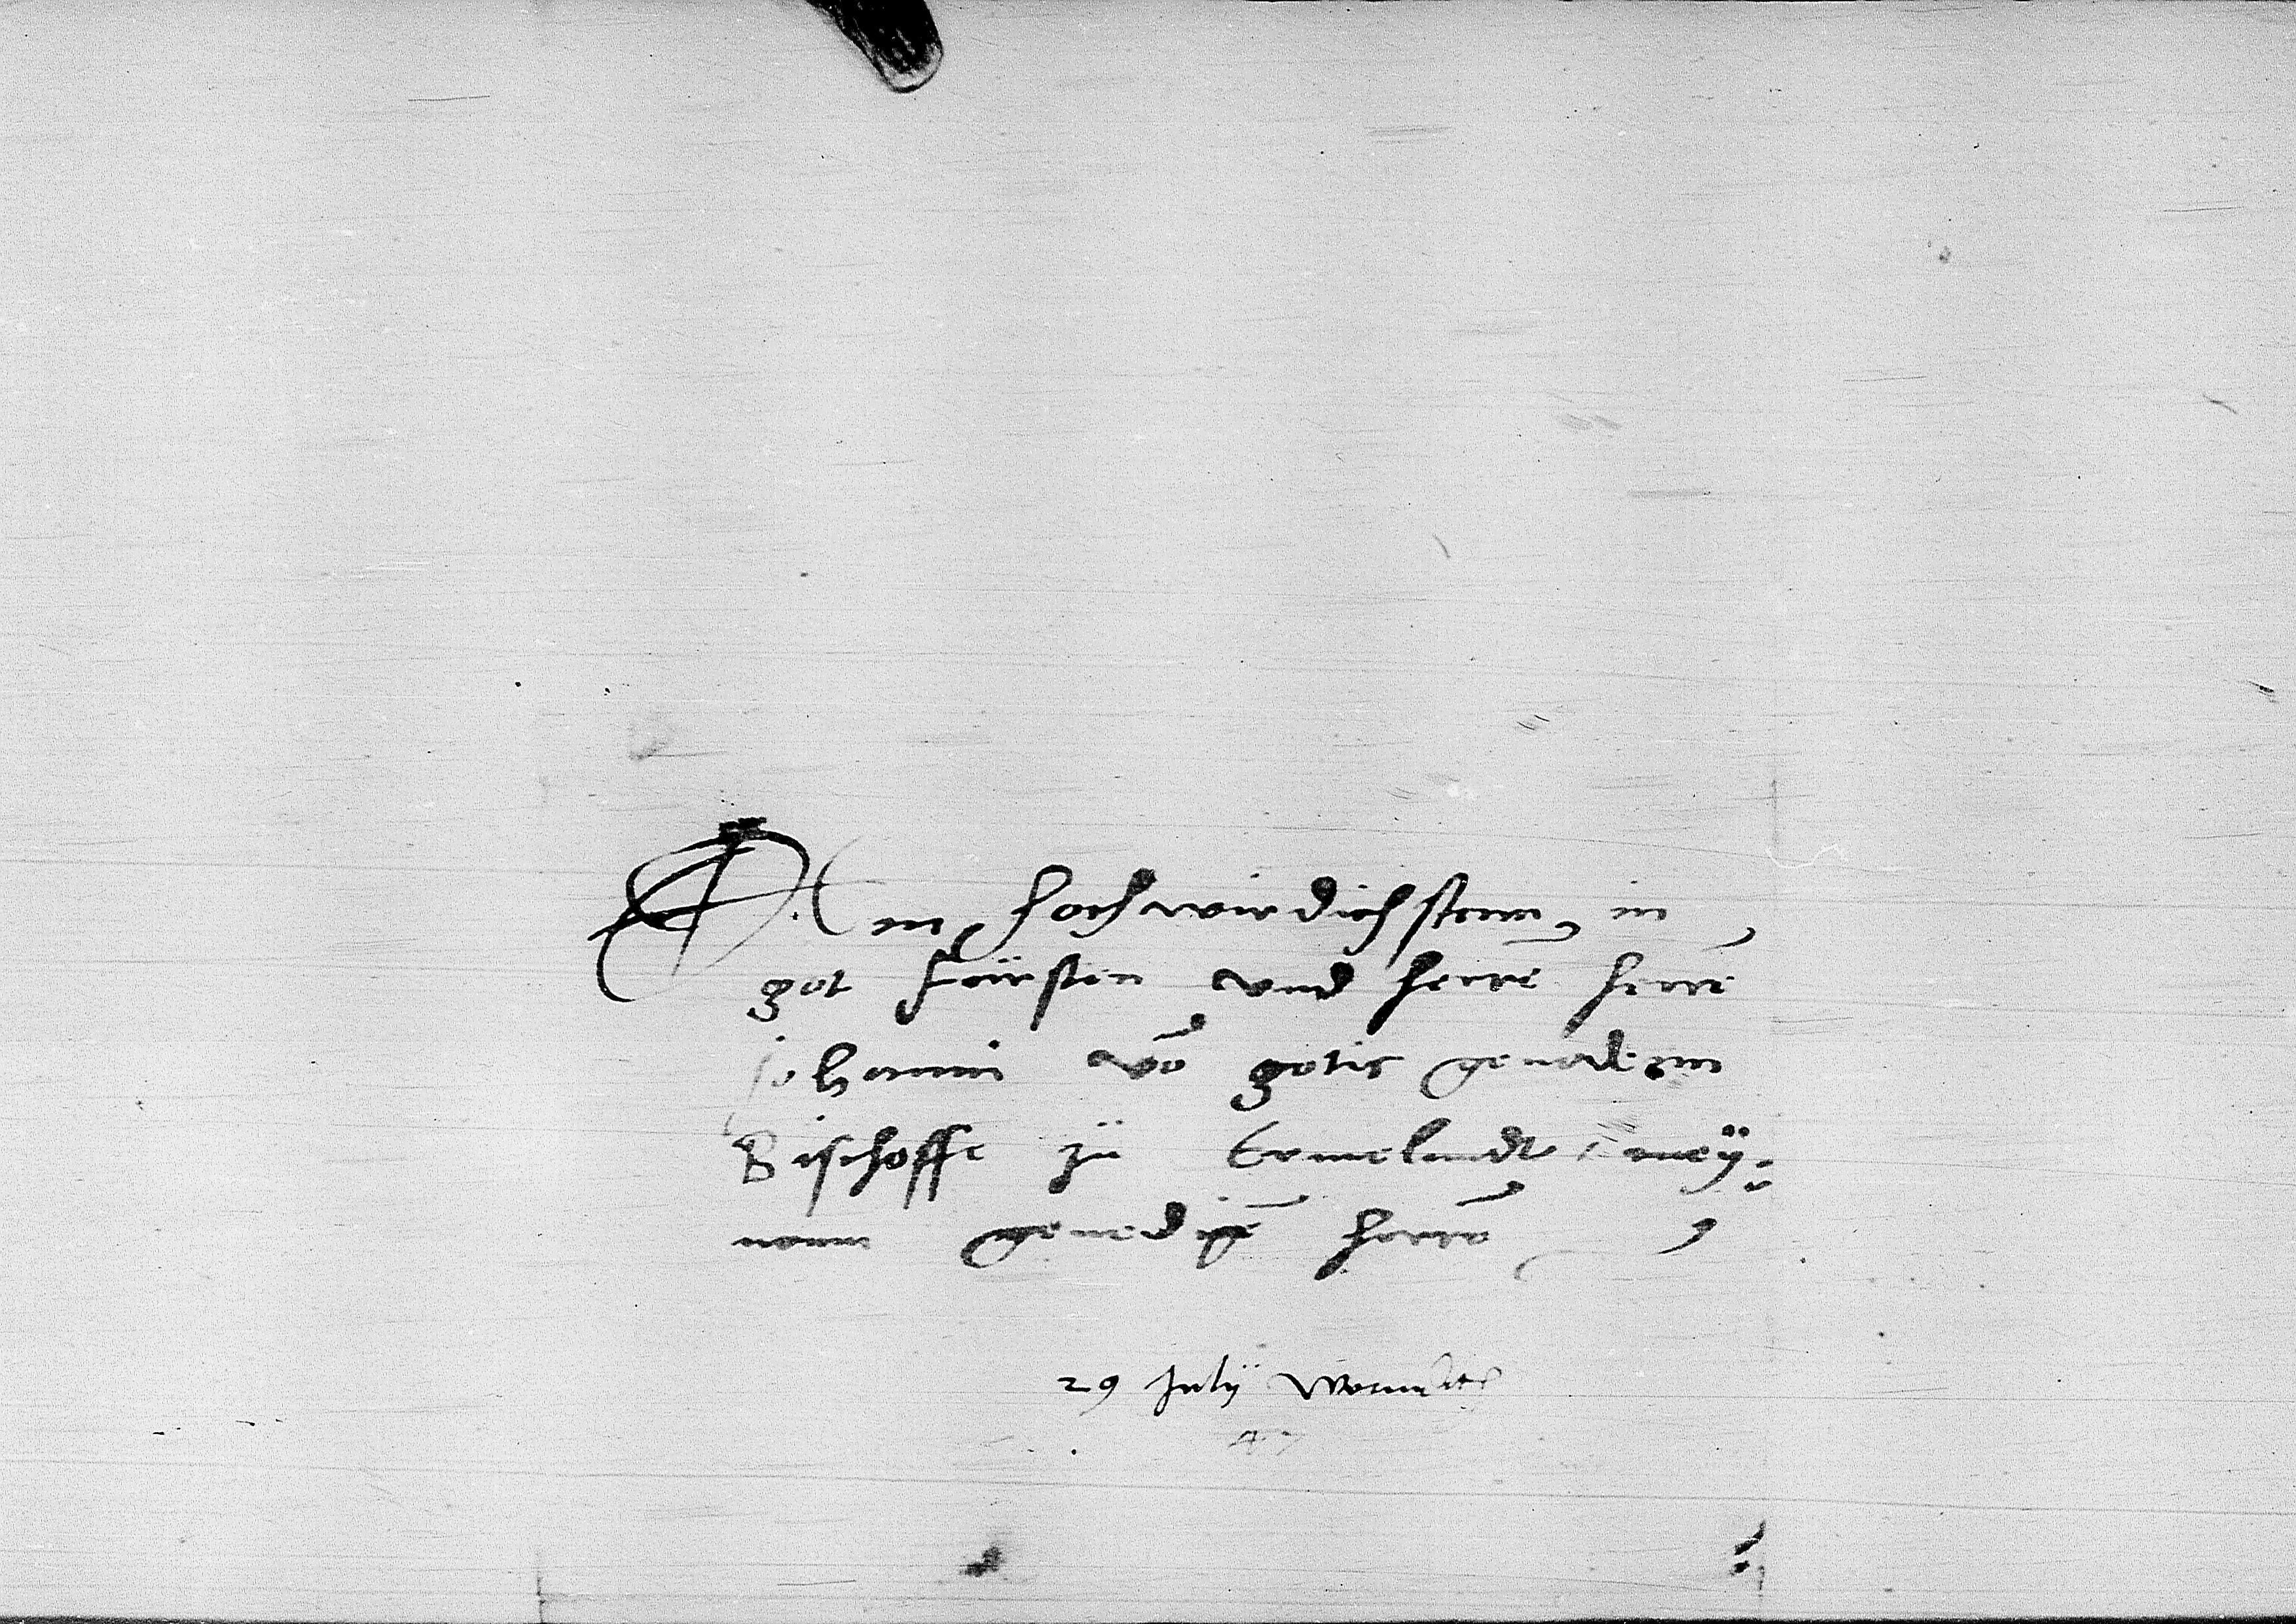 Dem hochwirdichstenn in
got fürsten vnd herrē herrē
Johanni vō gotis genadenn
Bischoffe zü Ermelandt meÿ:
nem genedigē herrē
29 Julÿ